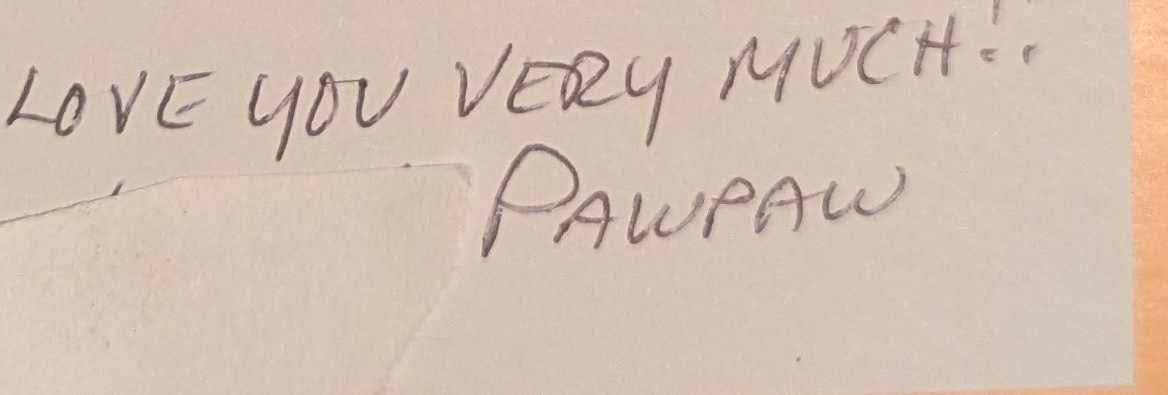 LOVE YOU VERY MUCH!!
PAWPAW